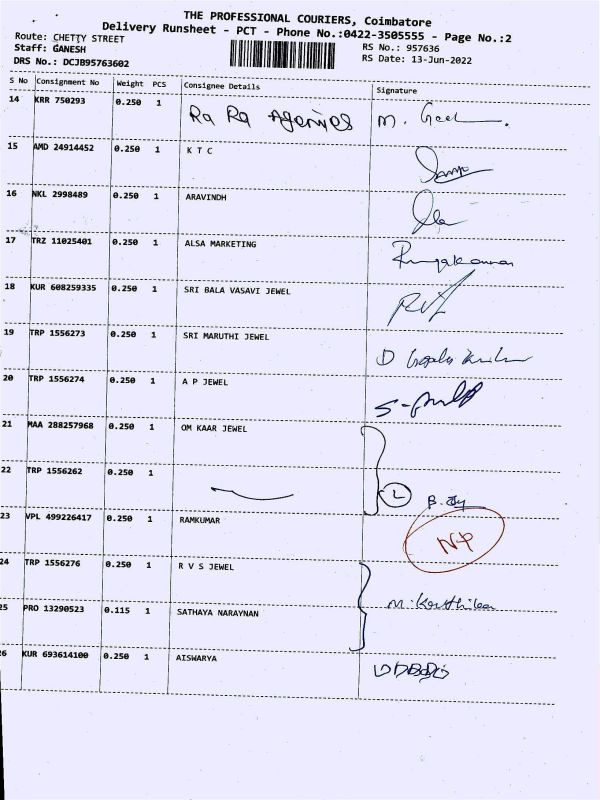 THE PROFESSIONAL COURIERS, Coimbatore
Delivery Runsheet - PCT - Phone No.:0422-3505555 - Page No.:2
Route: CHETTY STREET
Staff: GANESH
DRS No.: DCJB95763602
RS No.: 957636
RS Date: 13-Jun-2022
S No Consignment No Weight PCS Consignee Details Signature
14 KRR 750293 0.250 1 Ra Ra Agencies M.
15 AMD 24914452 0.250 1 K T C
16 NKL 2998489 0.250 1 ARAVINDH
17 TRZ 11025401 0.250 1 ALSA MARKETING
18 KUR 608259335 0.250 1 SRI BALA VASAVI JEWEL
19 TRP 1556273 0.250 1 SRI MARUTHI JEWEL D
20 TRP 1556274 0.250 1 A P JEWEL
21 MAA 288257968 0.250 1 OM KAAR JEWEL
22 TRP 1556262 0.250 1 2 B.
23 VPL 499226417 0.250 1 RAMKUMAR NP
24 TRP 1556276 0.250 1 R V S JEWEL
25 PRO 13290523 0.115 1 SATHAYA NARAYNAN M.
26 KUR 693614100 0.250 1 AISWARYA